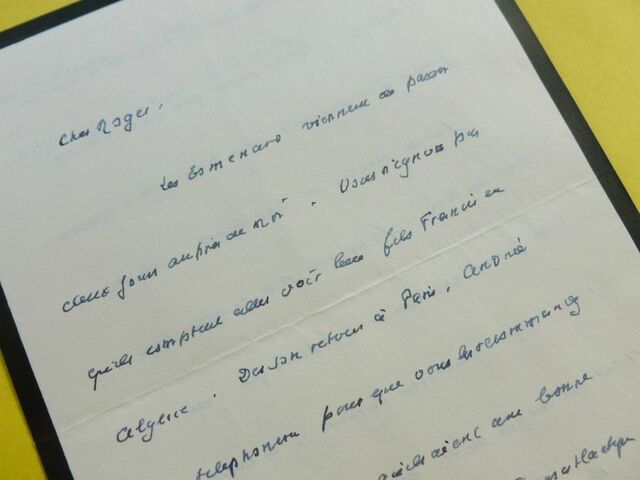 Cher Roger,
Les Esmenard viennent de passer
deux jours auprès de moi. Vous n'ignorez pas
qu'ils comptent aller voir leur fils Francis en
Algérie. Dès son retour à Paris, André
téléphonera pour que vous les recommandiez
une bonne